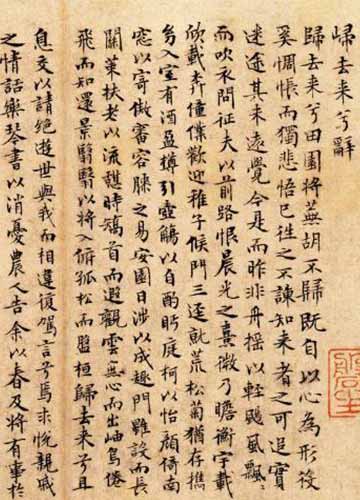 歸去来兮辭
歸去来兮田園將蕪胡不歸既自以心為形役
奚惆悵而獨悲悟已往之不諫知来者之可追實
迷途其未遠覺今是而昨非舟摇以輕颺風飄〻
而吹衣問征夫以前路恨晨光之熹微乃瞻衡宇載
欣載奔僮僕歡迎稚子候門三逕就荒松菊猶存携
幼入室有酒盈樽引壺觴以自酌眄庭柯以怡顔倚南
窓以寄傲審容膝之易安園日涉以成趣門雖設而長
關策扶老以流憩時矯首而遐觀雲無心而出岫鳥倦
飛而知還景翳翳以將入撫孤松而盤桓歸去来兮且
息交以請絶遊世與我而相違復駕言兮焉求悦親戚
之情話樂琴書以消憂農人告余以春及將有事於